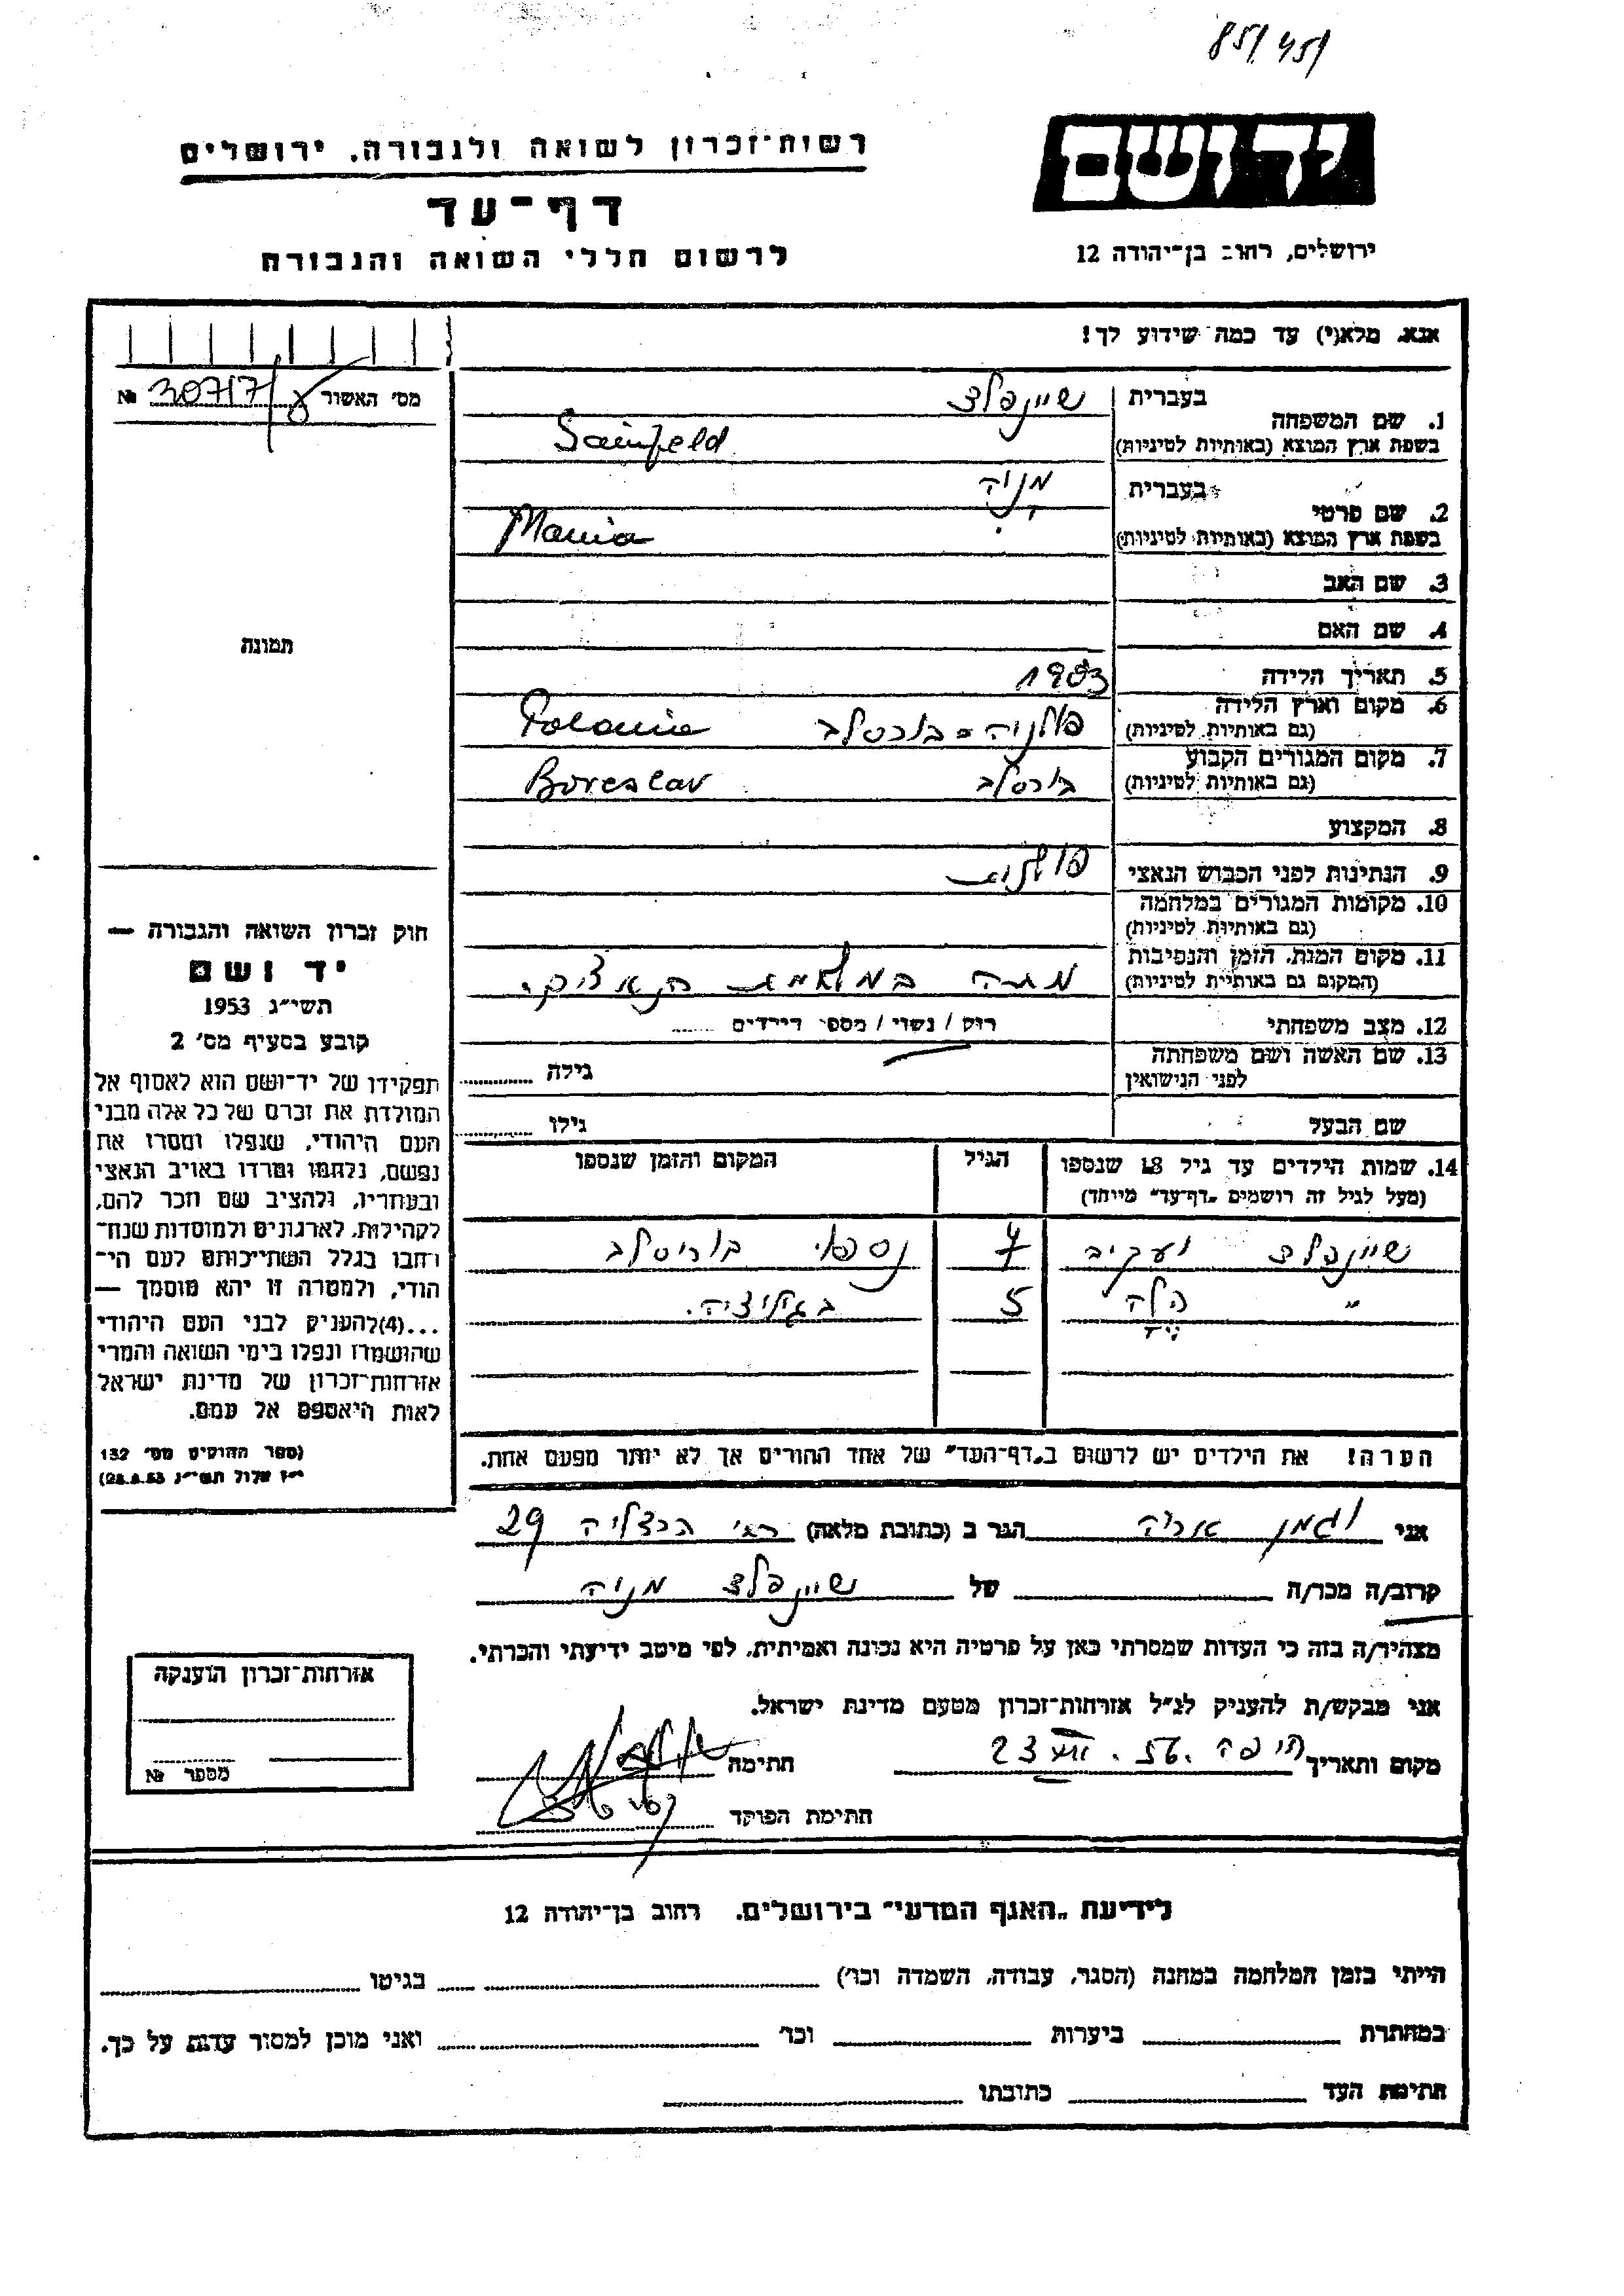 85/ 45/
יד ושם
ירושלים, רחוב בן־יהודה 12
רשות־זכרון לשואה ולגבורה, ירושלים
דף־עד
לרשום חללי השואה והגבורה
אנא, מלא(י) עד כמה שידוע לך!
מס׳ האשור 30717/ №
1. שם המשפחה
בעברית שיינפלד
בשפת ארץ המוצא (באותיות לטיניות) Sainfeld
2. שם פרטי
בעברית מניה
בשפת ארץ המוצא (באותיות לטיניות) Mania
3. שם האב
4. שם האם
5. תאריך הלידה 1903
6. מקום וארץ הלידה
(גם באותיות לטיניות) פולניה - בורסלב Polania
7. מקום המגורים הקבוע
(גם באותיות לטיניות) בורסלב Boreslav
8. המקצוע
9. הנתינות לפני הכבוש הנאצי פולנית
10. מקומות המגורים במלחמה
(גם באותיות לטיניות)
11. מקום המות, הזמן והנסיבות
(המקום גם באותיות לטיניות) מתה במלחמת
12. מצב משפחתי רוק / נשוי / מספר הילדים
13. שם האשה ושם משפחתה
לפני הנישואין גילה
שם הבעל גילו
14. שמות הילדים עד גיל 18 שנספו הגיל המקום והזמן שנספו
(מעל לגיל זה רושמים „דף־עד״ מיוחד)
שיינפלד יעקיב 7 נספו בוריסלב
״ הלה 5 בגליציה.
הערה! את הילדים יש לרשום ב„דף־העד״ של אחד ההורים אך לא יותר מפעם אחת.
תמונה
חוק זכרון השואה והגבורה —
יד ושם
תשי״ג 1953
קובע בסעיף מס׳ 2
תפקידו של יד־ושם הוא לאסוף אל
המולדת את זכרם של כל אלה מבני
העם היהודי, שנפלו ומסרו את
נפשם, נלחמו ומרדו באויב הנאצי
ובעוזריו, ולהציב שם וזכר להם,
לקהילות, לארגונים ולמוסדות שנח־
רבו בגלל השתייכותם לעם הי־
הודי, ולמטרה זו יהא מוסמך —
...(4) להעניק לבני העם היהודי
שהושמדו ונפלו בימי השואה והמרי
אזרחות־זכרון של מדינת ישראל
לאות היאספם אל עמם.
(ספר החוקים מס׳ 132
י״ז אלול תשי״ג 28.8.53)
אני וגמן אריה הגר ב (כתובת מלאה) הרצליה 29
קרוב/ה מכר/ה של שיינפלד מניה
מצהיר/ה בזה כי העדות שמסרתי כאן על פרטיה היא נכונה ואמיתית, לפי מיטב ידיעתי והכרתי.
אני מבקש/ת להעניק לנ״ל אזרחות־זכרון מטעם מדינת ישראל.
מקום ותאריך חיפה 23 56. חתימה
חתימת הפוקד
אזרחות־זכרון הוענקה
מספר №
לידיעת „האגף המדעי״ בירושלים, רחוב בן־יהודה 12
הייתי בזמן המלחמה במחנה (הסגר, עבודה, השמדה וכו׳) בגיטו
במחתרת ביערות וכו׳ ואני מוכן למסור עדות על כך.
חתימת העד כתובתו